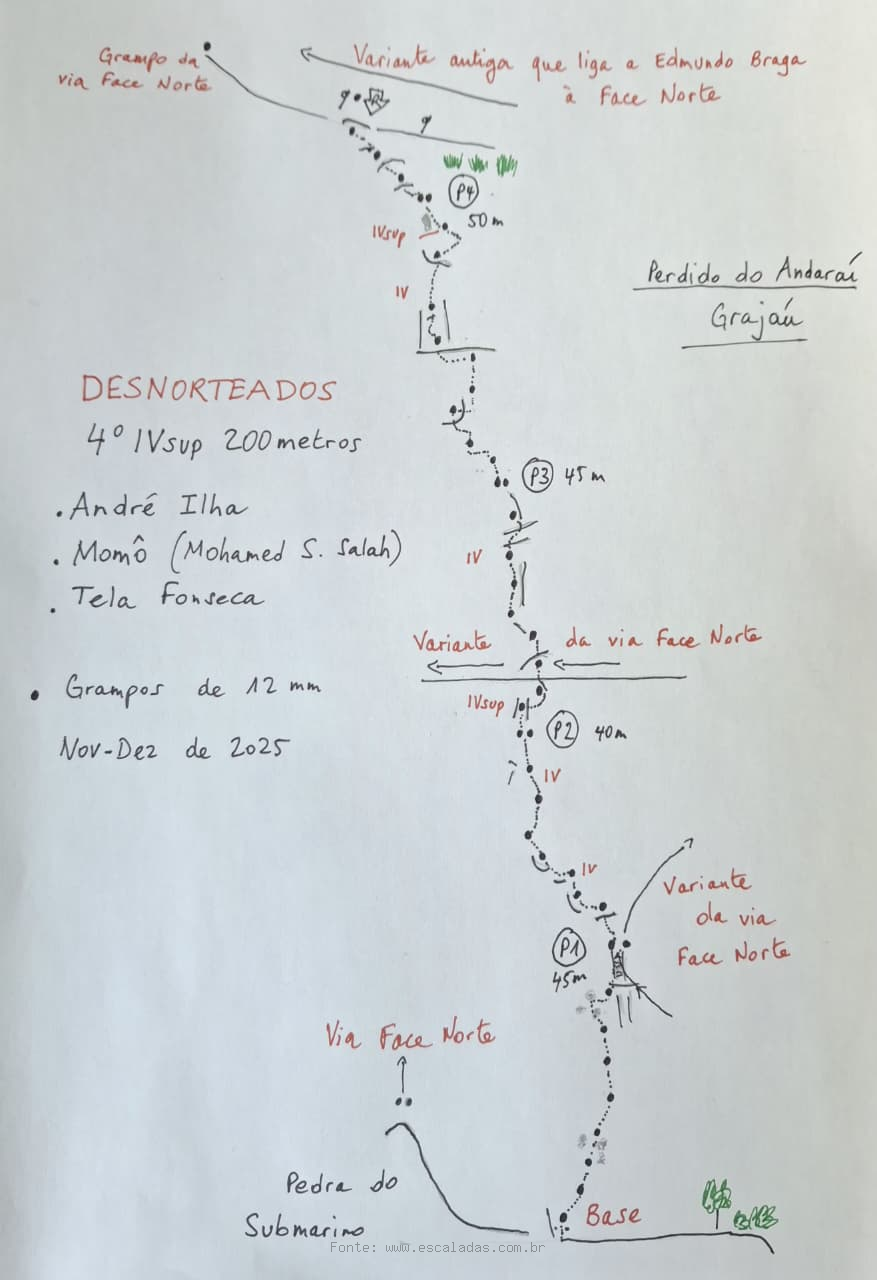 Grampo da
via Face Norte
Variante antiga que liga a Edmundo Braga
à Face Norte
P4
50 m
IVsup
IV
Perdido do Andaraí
Grajaú
DESNORTEADOS
4º IVsup 200 metros
. André Ilha
. Momô (Mohamed S. Salah)
. Tela Fonseca
P3 45 m
IV
Variante da via Face Norte
• Grampos de 12 mm
Nov-Dez de 2025
IVsup
P2 40m
IV
IV
Variante
da via
Face Norte
P1
45m
Via Face Norte
Pedra do
Submarino
Base
Fonte: www.escaladas.com.br